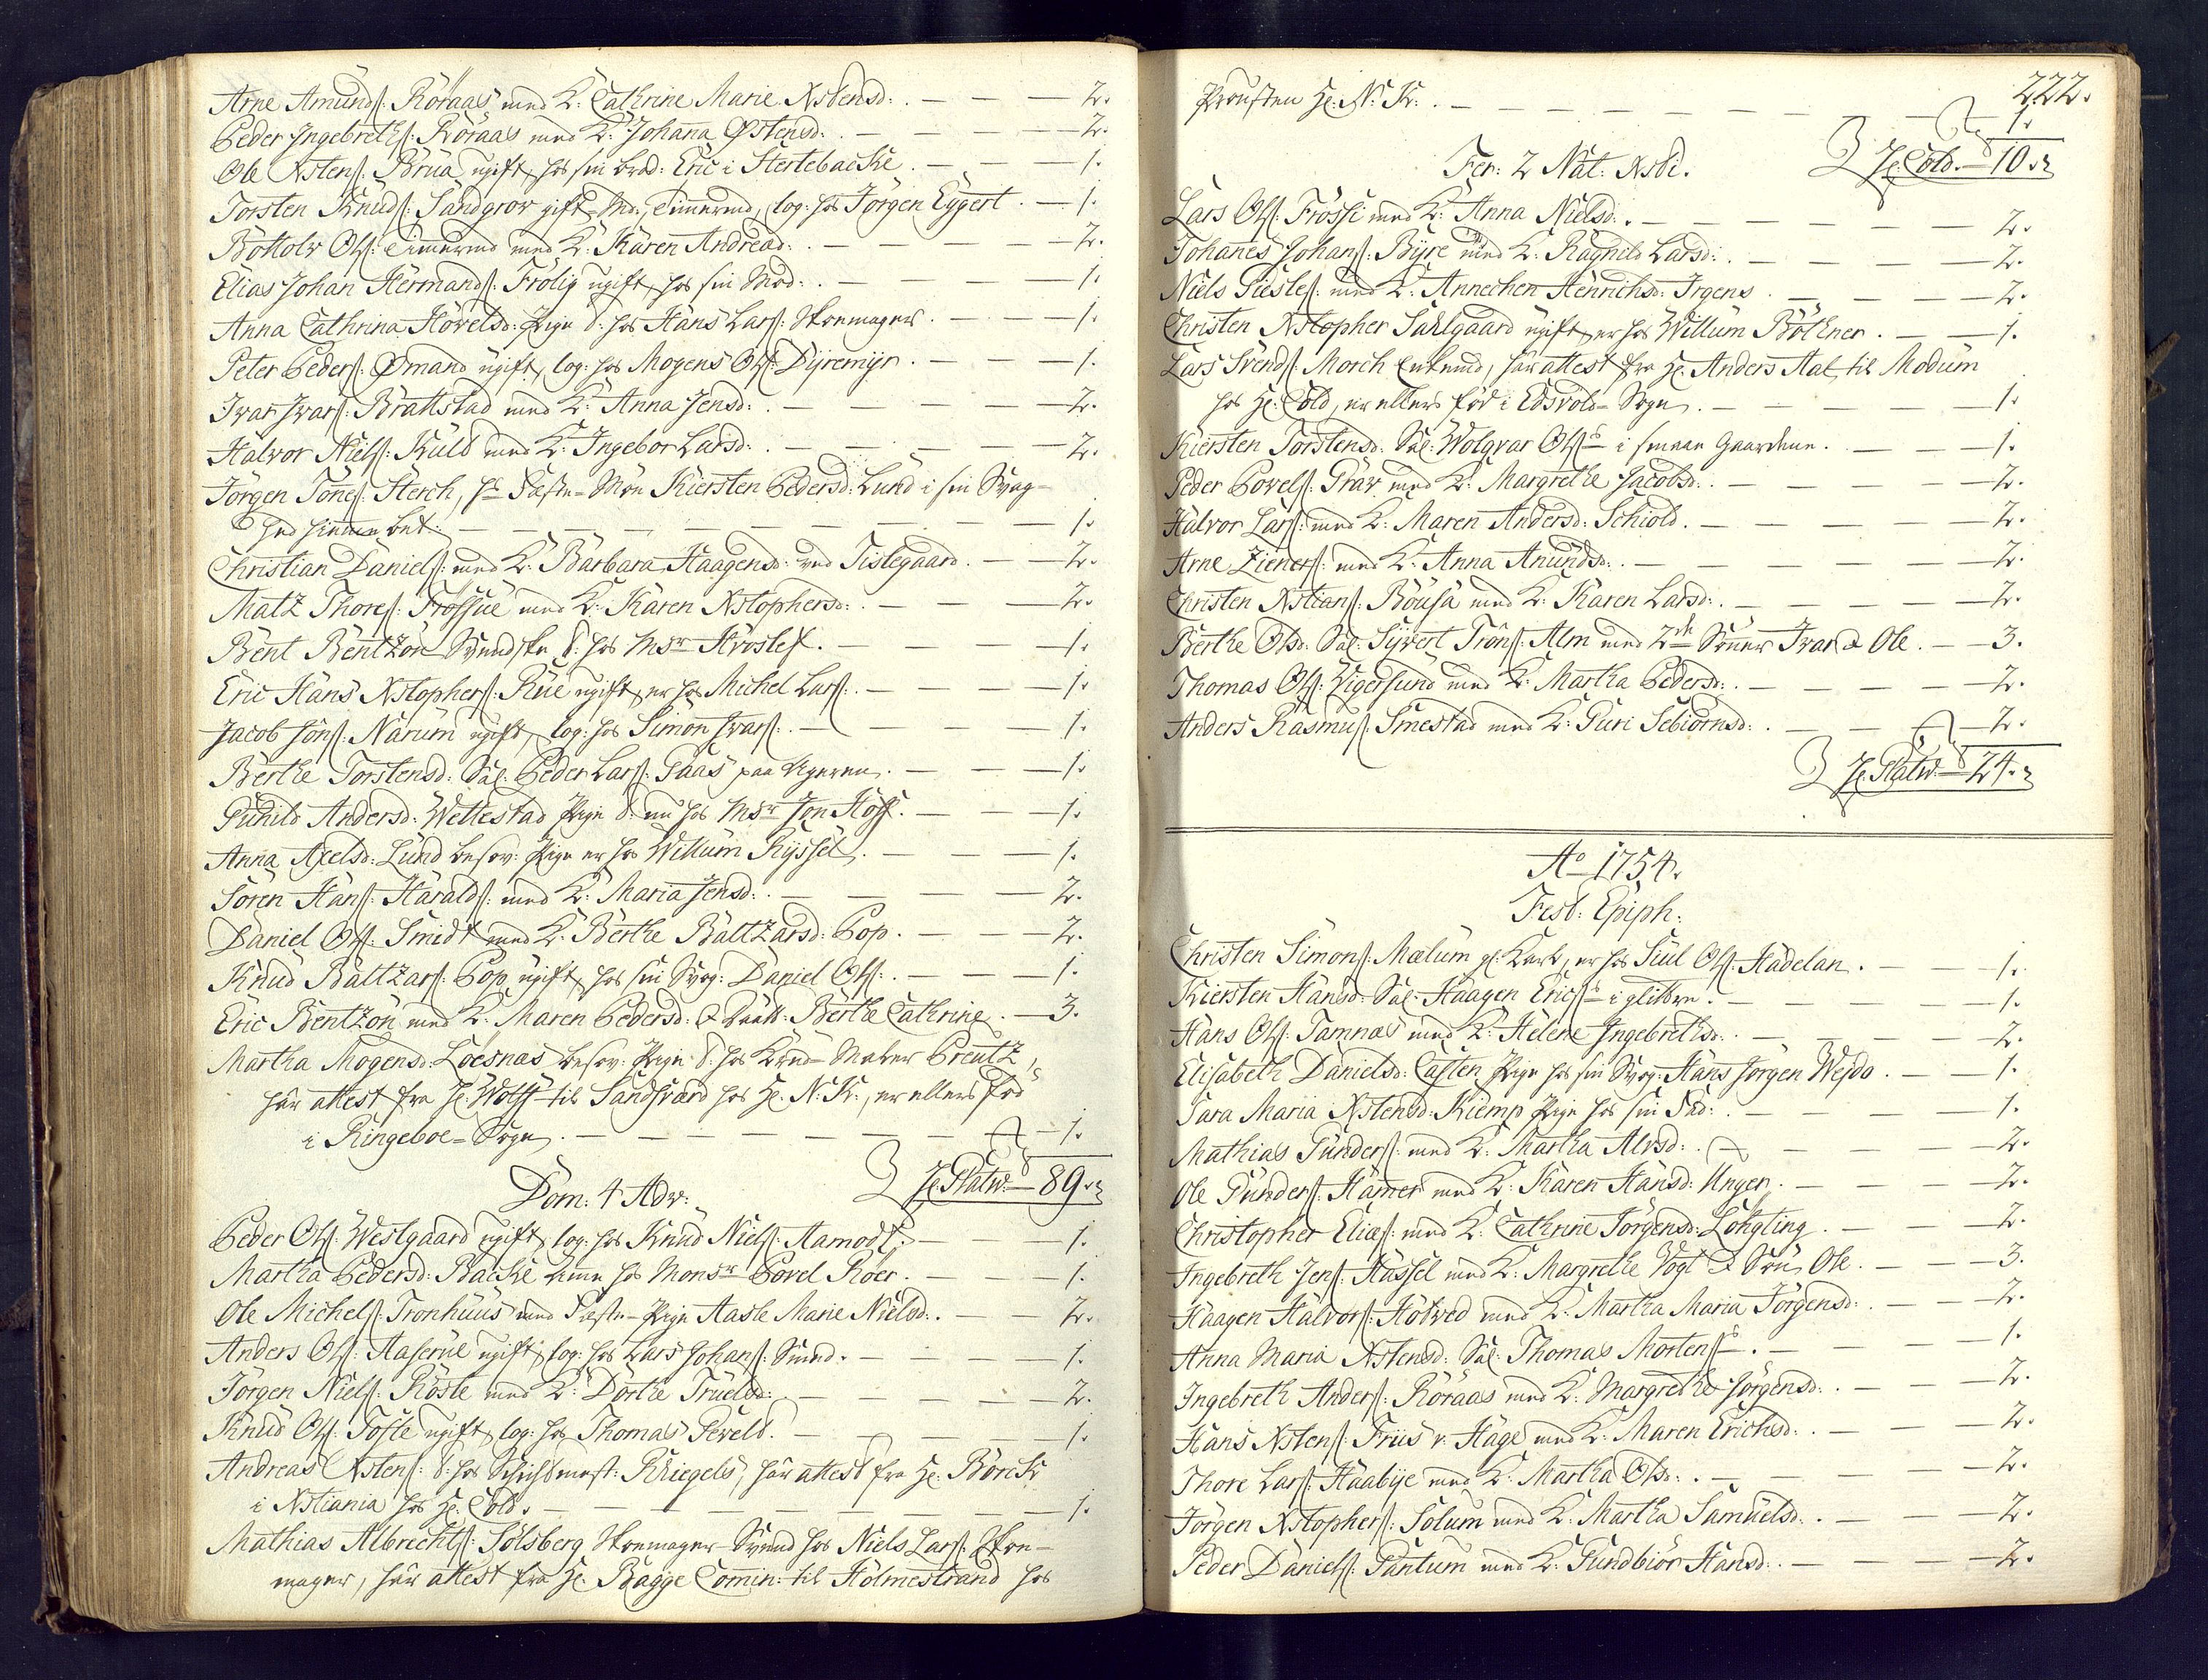 Arne Amunds: Röraas med K: Cathrine Marie Xstensd: . — — — 2.
Peder Ingebreths: Röraas med K: Johaña Østensd: . — — — 2.
Ole Xstens: Brua ugift, hos sin brod: Eric i Stertebacke . — — — 1.
Torsten Knuds: Sandgrov gift Md: Timmermd, log: hos Jörgen Eggert . — 1.
Bottolv Ols: Timmermd med K: Karen Andread: . — — — 2.
Elias Johan Hermands: Frölig ugift, hos sin Mod: . — — — 1.
Anna Cathrina Hövelsd: Pige t: hos Hans Lars: Skoemager . — — — 1.
Peter Peders: Ømand ugift, log: hos Mogens Ols: Dyremyr . — — — 1.
Ivar Ivars: Brattstad med K: Anna Jensd: . — — — 2.
Halvor Niels: Kuld med K: Ingebor Larsd: . — — — 2.
Jörgen Tönes: Sterch, hs Fæste-Møe Kiersten Pedersd: Lund i sin Syeg-
hed hiemme bet: — — — 1.
Christian Daniels: med K: Barbara Haagensd: ved Tislegaard . — — 2.
Matz Thores: Frössue med K: Karen Xstophersd: . — — — 2.
Bent Bentzon Svendske t: hos Msr Hvoslef . — — — 1.
Eric Hans Xstophers: Rue ugift, er hos Michel Lars: . — — — 1.
Jacob Jöns: Narum ugift, log: hos Simon Ivars: . — — — 1.
Berthe Torstensd: Sal: Peder Lars: Gaas paa Ageren . — — — 1.
Gunild Andersd: Wettestad Pige t: nu hos Msr Jon Hoff . — — — 1.
Anna Axelsd: Lund besov: Pige er hos Willum Ryssel . — — — 1.
Sören Hans: Haralds: med K: Maria Jensd: . — — — 2.
Daniel Ols: Smidt med K: Berthe Baltzarsd: Pop . — — — 2.
Knud Baltzars: Pop ugift, hos sin Svog: Daniel Ols: . — — — 1.
Eric Bentzon med K: Maren Pedersd: & Daatt: Berthe Cathrine . — 3.
Martha Mogensd: Loesnæs besov: Pige t: hos Kond-Mater Preutz,
har attest fra H: Wolff til Sandsværd hos H: N: K:, er ellers föd
i Ringeboe-Sogn . — — — 1.
H: Platw — 89.
Dom: 4 Adv:
Peder Ols: Westgaard ugift, log: hos Knud Niels: Aamodt . — — — 1.
Martha Pedersd: Backe Amme hos Monsr Povel Röer . — — — 1.
Ole Michels: Tronhuus med Fæste-Pige Aasle Marie Nielsd: . — — 2.
Anders Ols: Haserue ugift, log: hos Lars Johans: Smed . — — 1.
Jörgen Niels: Röste med K: Dorthe Truelsd: . — — — 2.
Knud Ols: Tofte ugift, log: hos Thomas Geveld . — — — 1.
Andreas Xstens: t: hos Schichtmest: Kriegels, har attest fra H: Börck
i Xstiania hos H: Cold . — — — 1.
Mathias Albrechts: Solsberg Skoemager-Svend hos Niels Lars: Skoe-
mager, har attest fra H: Bagge Comin: til Holmestrand hos
222.
Prousten H: N: K: . — — — 1.
H: Cold — 10.
Fer: 2 Nat: Xsti.
Lars Ols: Frössi med K: Anna Nielsd: . — — — 2.
Johañes Johans: Byre med K: Ragnild Larsd: . — — — 2.
Niels Giesles: med K: Annechen Henrichsd: Irgens . — — — 2.
Christen Xstopher Sahlgaard ugift, er hos Willum Böthner . — — 1.
Lars Svends: Morch Enkemd, har attest fra H: Anders Aal til Modum
hos H: Cold, er ellers föd i Edsvold-Sogn . — — — 1.
Kiersten Torstensd: Sal: Wolgvar Ols: i smaae Gaardene . — — 1.
Peder Povels: Prav med K: Margrethe Jacobsd: . — — — 2.
Halvor Lars: med K: Maren Andersd: Schiold . — — — 2.
Arne Zieners: med K: Anna Amundsd: . — — — 2.
Christen Xstians: Bousa med K: Karen Larsd: . — — — 2.
Berthe Olsd: Sal: Syvert Trons: Alm med 2de Sönner Ivar & Ole . — 3.
Thomas Ols: Eigersund med K: Martha Pedersd: . — — — 2.
Anders Rasmus: Smestad med K: Guri Sebiornsd: . — — — 2.
H: Platw — 24.
Ao 1754.
Fest: Epiph:
Christen Simons: Mælum gl: Karl, er hos Siul Ols: Hadelan . — — 1.
Kiersten Hansd: Sal: Haagen Erics: i glitre . — — — 1.
Hans Ols: Tamnæs med K: Helene Ingebrethsd: . — — — 2.
Elisabeth Danielsd: Casten Pige hos sin Svog: Hans Jörgen Wejdo . — 1.
Sara Maria Xstensd: Kiemp Pige hos sin Fad: . — — — 1.
Mathias Gunders: med K: Martha Alvsd: . — — — 2.
Ole Gunders: Hamer med K: Karen Hansd: Unger . — — — 2.
Christopher Elias: med K: Cathrine Jörgensd: Lökgting . — — — 2.
Ingebreth Jens: Hassel med K: Margrethe Vogt & Søn Ole . — — 3.
Haagen Halvors: Hotved med K: Martha Maria Jörgensd: . — — 2.
Anna Maria Xstensd: Sal: Thomas Mortens: . — — — 1.
Ingebreth Anders: Röraas med K: Margrethe Jörgensd: . — — 2.
Hans Xstens: Friis v: Hage med K: Maren Erichsd: . — — 2.
Thore Lars: Haabye med K: Martha Olsd: . — — — 2.
Jörgen Xstophers: Solum med K: Martha Samuelsd: . — — 2.
Peder Daniels: Gantum med K: Gundbiör Hansd: . — — 2.